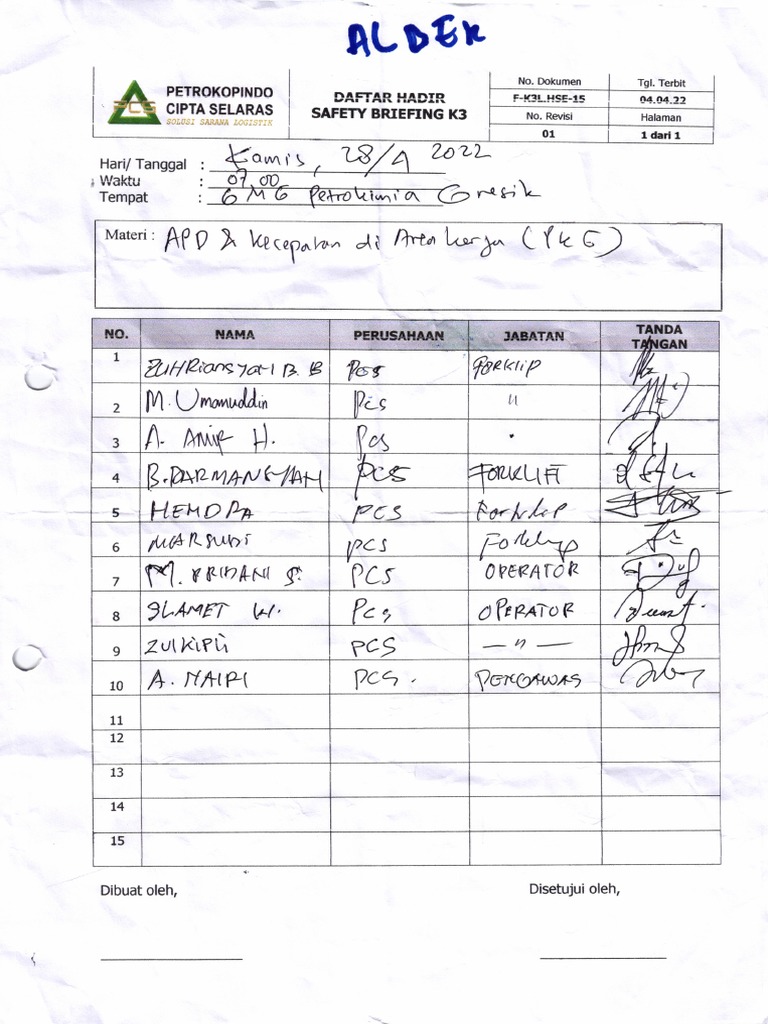 ALDER
PETROKOPINDO
CIPTA SELARAS
SOLUSI SARANA LOGISTIK
PCS
DAFTAR HADIR
SAFETY BRIEFING K3
No. Dokumen
F-K3L.HSE-15
No. Revisi
01
Tgl. Terbit
04.04.22
Halaman
1 dari 1
Hari/ Tanggal : Kamis, 28/4 2022
Waktu : 07.00
Tempat : GMG Petrokimia Gresik
Materi : APD & Kecepatan di Area kerja (PKG)
NO. NAMA PERUSAHAAN JABATAN TANDA TANGAN
1 ZUHRiansyah B. B PCS Forklip
2 M. Umamuddin PCS "
3 A. Amir H. PCS
4 B. DARMANSYAH PCS FORKLIFT
5 HENDRA PCS Forklip
6 MARSUDI PCS Forklip
7 M. S. PCS OPERATOR
8 SLAMET W. PCS OPERATOR
9 ZULKIPLI PCS — " —
10 A. NAIRI PCS. PENGAWAS
11
12
13
14
15
Dibuat oleh, Disetujui oleh,